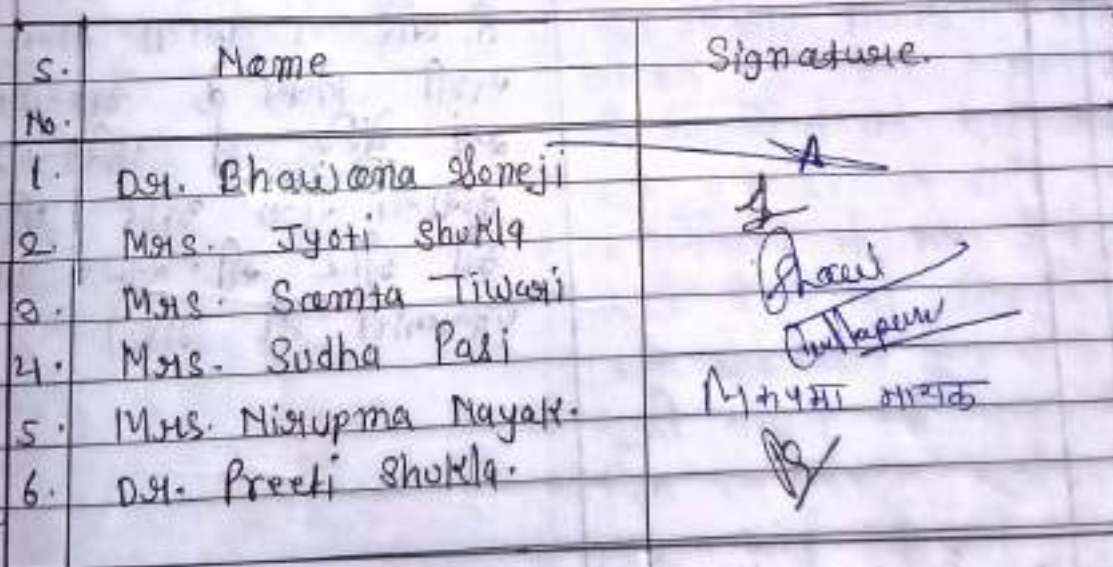 S. No. Name Signature.
1. Dr. Bhawana Soneji
2. Mrs. Jyoti Shukla
3. Mrs. Samta Tiwari
4. Mrs. Sudha Pasi
5. Mrs. Nirupma Nayak. निरुपमा नायक
6. Dr. Preeti Shukla.